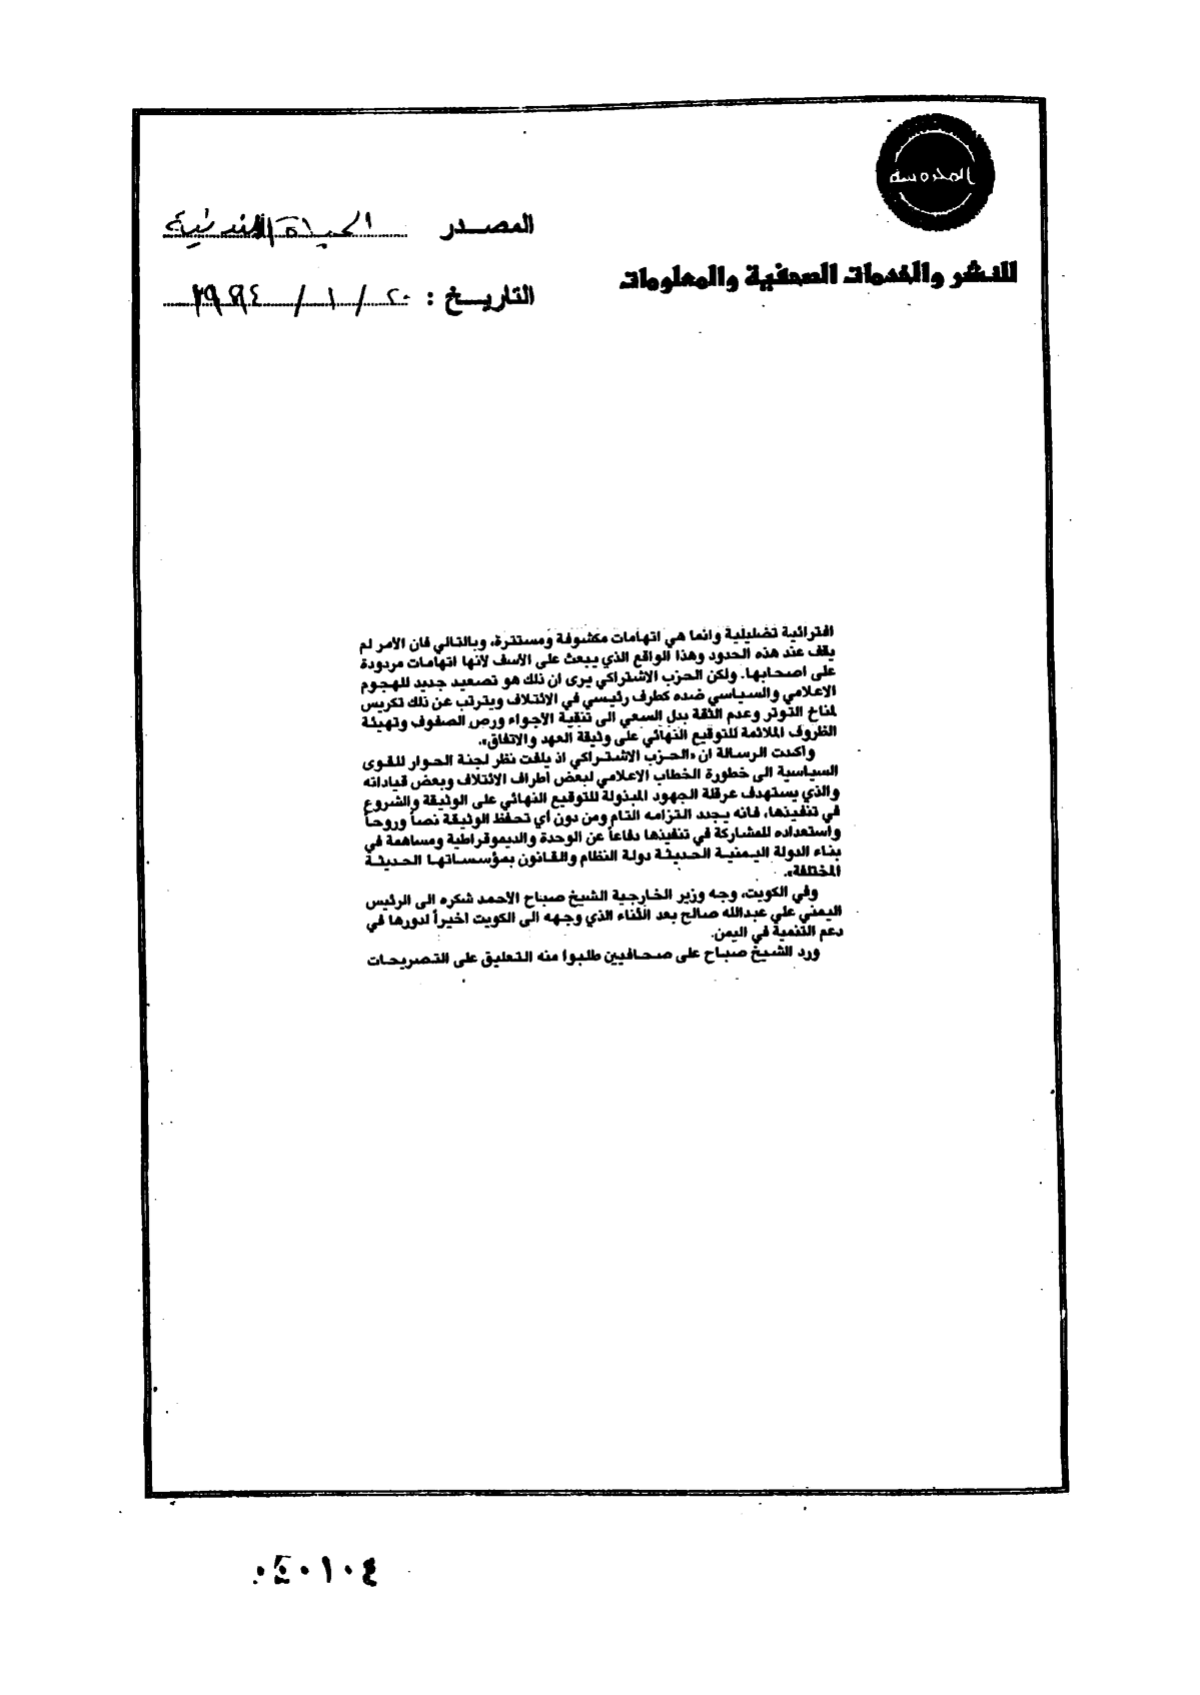 المحروسة
للنشر والخدمات الصحفية والمعلومات
المصدر الحياة اللندنية
التاريخ : ٢٠ / ١ / ١٩٩٤
افترائية تضليلية وانما هي اتهامات مكشوفة ومستترة، وبالتالي فان الأمر لم
يقف عند هذه الحدود وهذا الواقع الذي يبعث على الأسف لأنها اتهامات مردودة
على اصحابها. ولكن الحزب الاشتراكي يرى ان ذلك هو تصعيد جديد للهجوم
الاعلامي والسياسي ضده كطرف رئيسي في الائتلاف ويترتب عن ذلك تكريس
لمناخ التوتر وعدم الثقة بدل السعي الى تنقية الأجواء ورص الصفوف وتهيئة
الظروف الملائمة للتوقيع النهائي على وثيقة العهد والاتفاق».
واكدت الرسالة ان «الحزب الاشتراكي اذ يلفت نظر لجنة الحوار للقوى
السياسية الى خطورة الخطاب الاعلامي لبعض أطراف الائتلاف وبعض قياداته
والذي يستهدف عرقلة الجهود المبذولة للتوقيع النهائي على الوثيقة والشروع
في تنفيذها، فانه يجدد التزامه التام ومن دون أي تحفظ الوثيقة نصاً وروحاً
واستعداده للمشاركة في تنفيذها دفاعاً عن الوحدة والديموقراطية ومساهمة في
بناء الدولة اليمنية الحديثة دولة النظام والقانون بمؤسساتها الحديثة
المختلفة».
وفي الكويت، وجه وزير الخارجية الشيخ صباح الأحمد شكره الى الرئيس
اليمني علي عبدالله صالح بعد الثناء الذي وجهه الى الكويت اخيراً لدورها في
دعم التنمية في اليمن.
ورد الشيخ صباح على صحافيين طلبوا منه التعليق على التصريحات